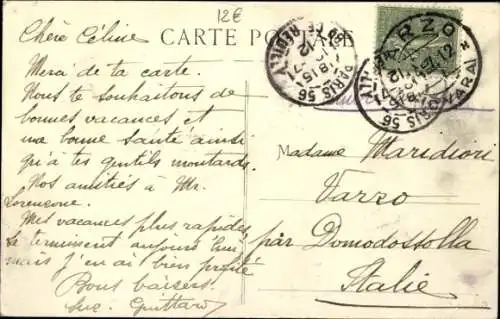 12€
CARTE POSTALE
Chère Céline
Merci de ta carte.
Nous te souhaitons de
bonnes vacances et
une bonne santé ainsi
qu'à tes gentils moutards.
Nos amitiés à Mr.
Lorenzone.
Mes vacances plus rapides
se terminent aujourd'hui
mais j'en ai bien profité
Bons baisers
Luc. Guittard
PARIS 56
VARZO
PARIS 56
Madame Maridiori
Varzo
par Domodossolla
Italie